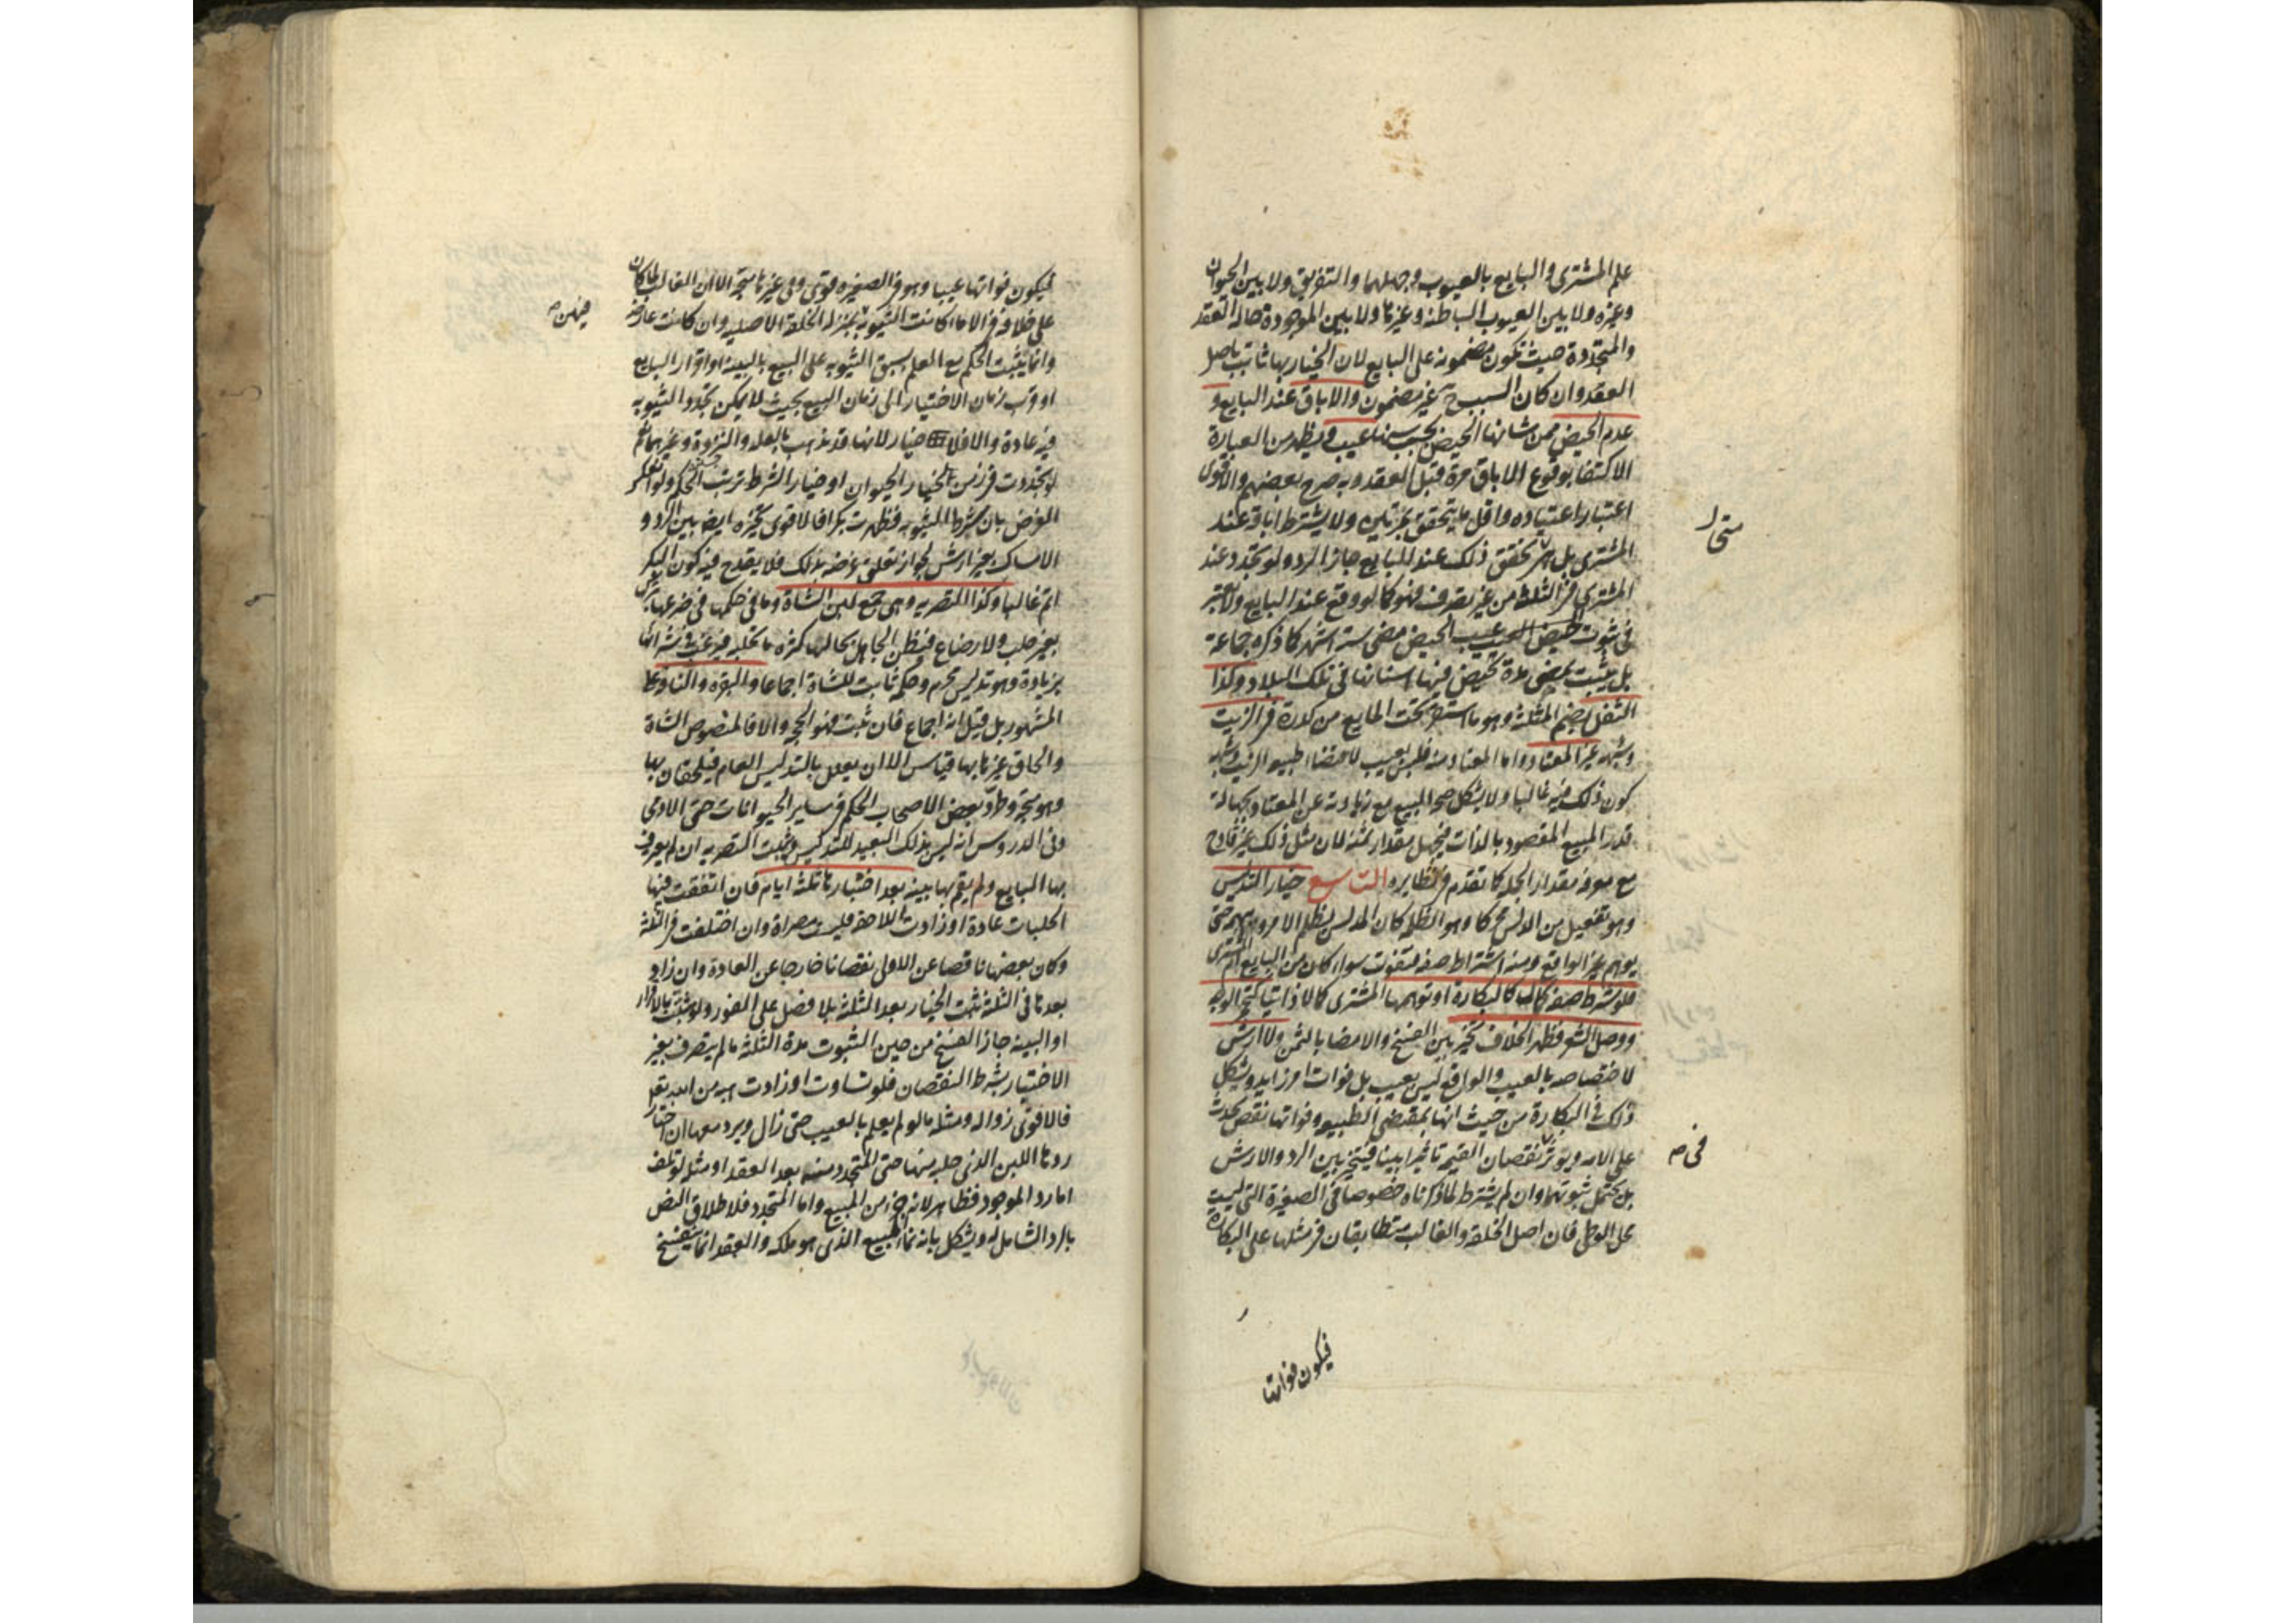 علم المشتري والبايع بالعيوب وجهلهما والتفريق ولا بين الحيوان
وغيره ولا بين العيوب الباطنة وغيرها ولا بين الموجودة حالة العقد
والمتجددة حيث تكون مضمونة على البايع لان الخيار بها ثابت باصل
العقد وان كان السبب ح غير مضمون والاباق عند البايع و
عدم الحيض ممن شانها الحيض بحسب سنها عيب ويظهر من العبارة
الاكتفا بوقوع الاباق مرة قبل العقد وبه صرح بعضهم والاقوى
اعتبار اعتياده واقل ما يتحقق بمرتين ولا يشترط اباقه عند
المشتري بل متى تحقق ذلك عند البايع جاز الرد ولو تجدد عند
المشتري في الثلثة من غير تصرف فهو كما لو وقع عند البايع ولا يعتبر
في ثبوت عيب الحيض مضي ستة اشهر كما ذكره جماعة
بل يثبت بمضي مدة تحيض فيها اسنانها في تلك البلاد وكذا
الثفل بضم المثلثة وهو ما استقر تحت المايع من كدرة في الزيت
وشبهه غير المعتاد واما المعتاد منه فليس بعيب لاقتضاء طبيعة الزيت وشبهه
كون ذلك فيه غالبا ولا يشكل صحة البيع مع زيادته عن المعتاد بجهالة
قدر المبيع المقصود بالذات فيجهل مقدار ثمنه لان مثل ذلك غير قادح
مع معرفة مقدار الجملة كما تقدم في نظايره التاسع خيار التدليس
وهو تفعيل من الدلس محركا وهو الظلمة كان المدلس يظلم الامر ويبهمه حتى
يوهم غير الواقع ومنه اشتراط صفة فتفوت سواء كان من البايع ام المشتري
فلو شرط صفة كمال كالبكارة او توهمها المشتري كمالا ذاتيا كتحمير الوجه
ووصل الشعر فظهر الخلاف تخير بين الفسخ والامضا بالثمن ولا ارش
لاختصاصه بالعيب والواقع ليس بعيب بل فوات امر زايد ويشكل
ذلك في البكارة من حيث انها بمقتضى الطبيعة وفواتها نقص يحدث
على الامة ويوثر في نقصان القيمة تاثيرا بينا فيتخير بين الرد والارش
بل يحتمل ثبوتهما وان لم يشترط لما ذكرناه خصوصا في الصغيرة التي ليست
محل الوطي فان اصل الخلقة والغالب متطابقان في مثلها على البكارة
فيكون فواتها
فيكون فواتها عيبا وهو في الصغيرة قوي وفي غيرها متجه الا ان الغالب لما كان
على خلافه في الاماء كانت الثيوبة بمنزلة الخلقة الاصلية وان كانت عارضة
وانما يثبت الحكم مع العلم بسبق الثيوبة على البيع بالبينة او اقرار البايع
او قرب زمان الاختبار الى زمان البيع بحيث لا يمكن تجدد الثيوبة
فيه عادة والا فلا خيار لانها قد تذهب بالعلة والنزوة وغيرهما نعم
لو تجددت في زمن خيار الحيوان او خيار الشرط ترتب الحكم ولو انعكس
الفرض بان يشترط الثيوبة فظهرت بكرا فالاقوى تخيره ايضا بين الرد و
الامساك بغير ارش لجواز تعلق غرضه بذلك فلا يقدح فيه كون البكر
اتم غالبا وكذا التصرية وهي جمع لبن الشاة وما في حكمها في ضرعها بتركه
بغير حلب ولا رضاع فيظن الجاهل بحالها كثرة ما تحلبه فيرغب في شرائها
بزيادة وهو تدليس محرم وحكمه ثابت للشاة اجماعا والبقرة والناقة على
المشهور بل قيل انه اجماع فان ثبت فهو الحجة والا فالمنصوص الشاة
والحاق غيرها بها قياس الا ان يعلل بالتدليس العام فيلحقان بها
وهو متجه وطرد بعض الاصحاب الحكم في ساير الحيوانات حتى الادمي
وفي الدروس انه ليس بذلك البعيد للتدليس وتثبت التصرية ان لم يعترف
بها البايع ولم يقم بها بينة بعد اختبارها ثلثة ايام فان اتفقت فيها
الحلبات عادة او زادت اللاحقة فليست مصراة وان اختلفت في الثلثة
وكان بعضها ناقصا عن الاولى نقصانا خارجا عن العادة وان زاد
بعدها في الثلثة ثبت الخيار بعد الثلثة بلا فصل على الفور ولو ثبتت بالاقرار
او البينة جاز الفسخ من حين الثبوت مدة الثلثة ما لم يتصرف بغير
الاختبار بشرط النقصان فلو تساوت او زادت هبة من الله تعالى
فالاقوى زواله ومثله ما لو لم يعلم بالعيب حتى زال ويرد معها ان اختار
ردها اللبن الذي حلبه منها حتى المتجدد منه بعد العقد او مثله لو تلف
اما رد الموجود فظاهر لانه جزء من المبيع واما المتجدد فلاطلاق النص
بالرد الشامل له ويشكل بانه نماء المبيع الذي هو ملكه والعقد انما ينفسخ